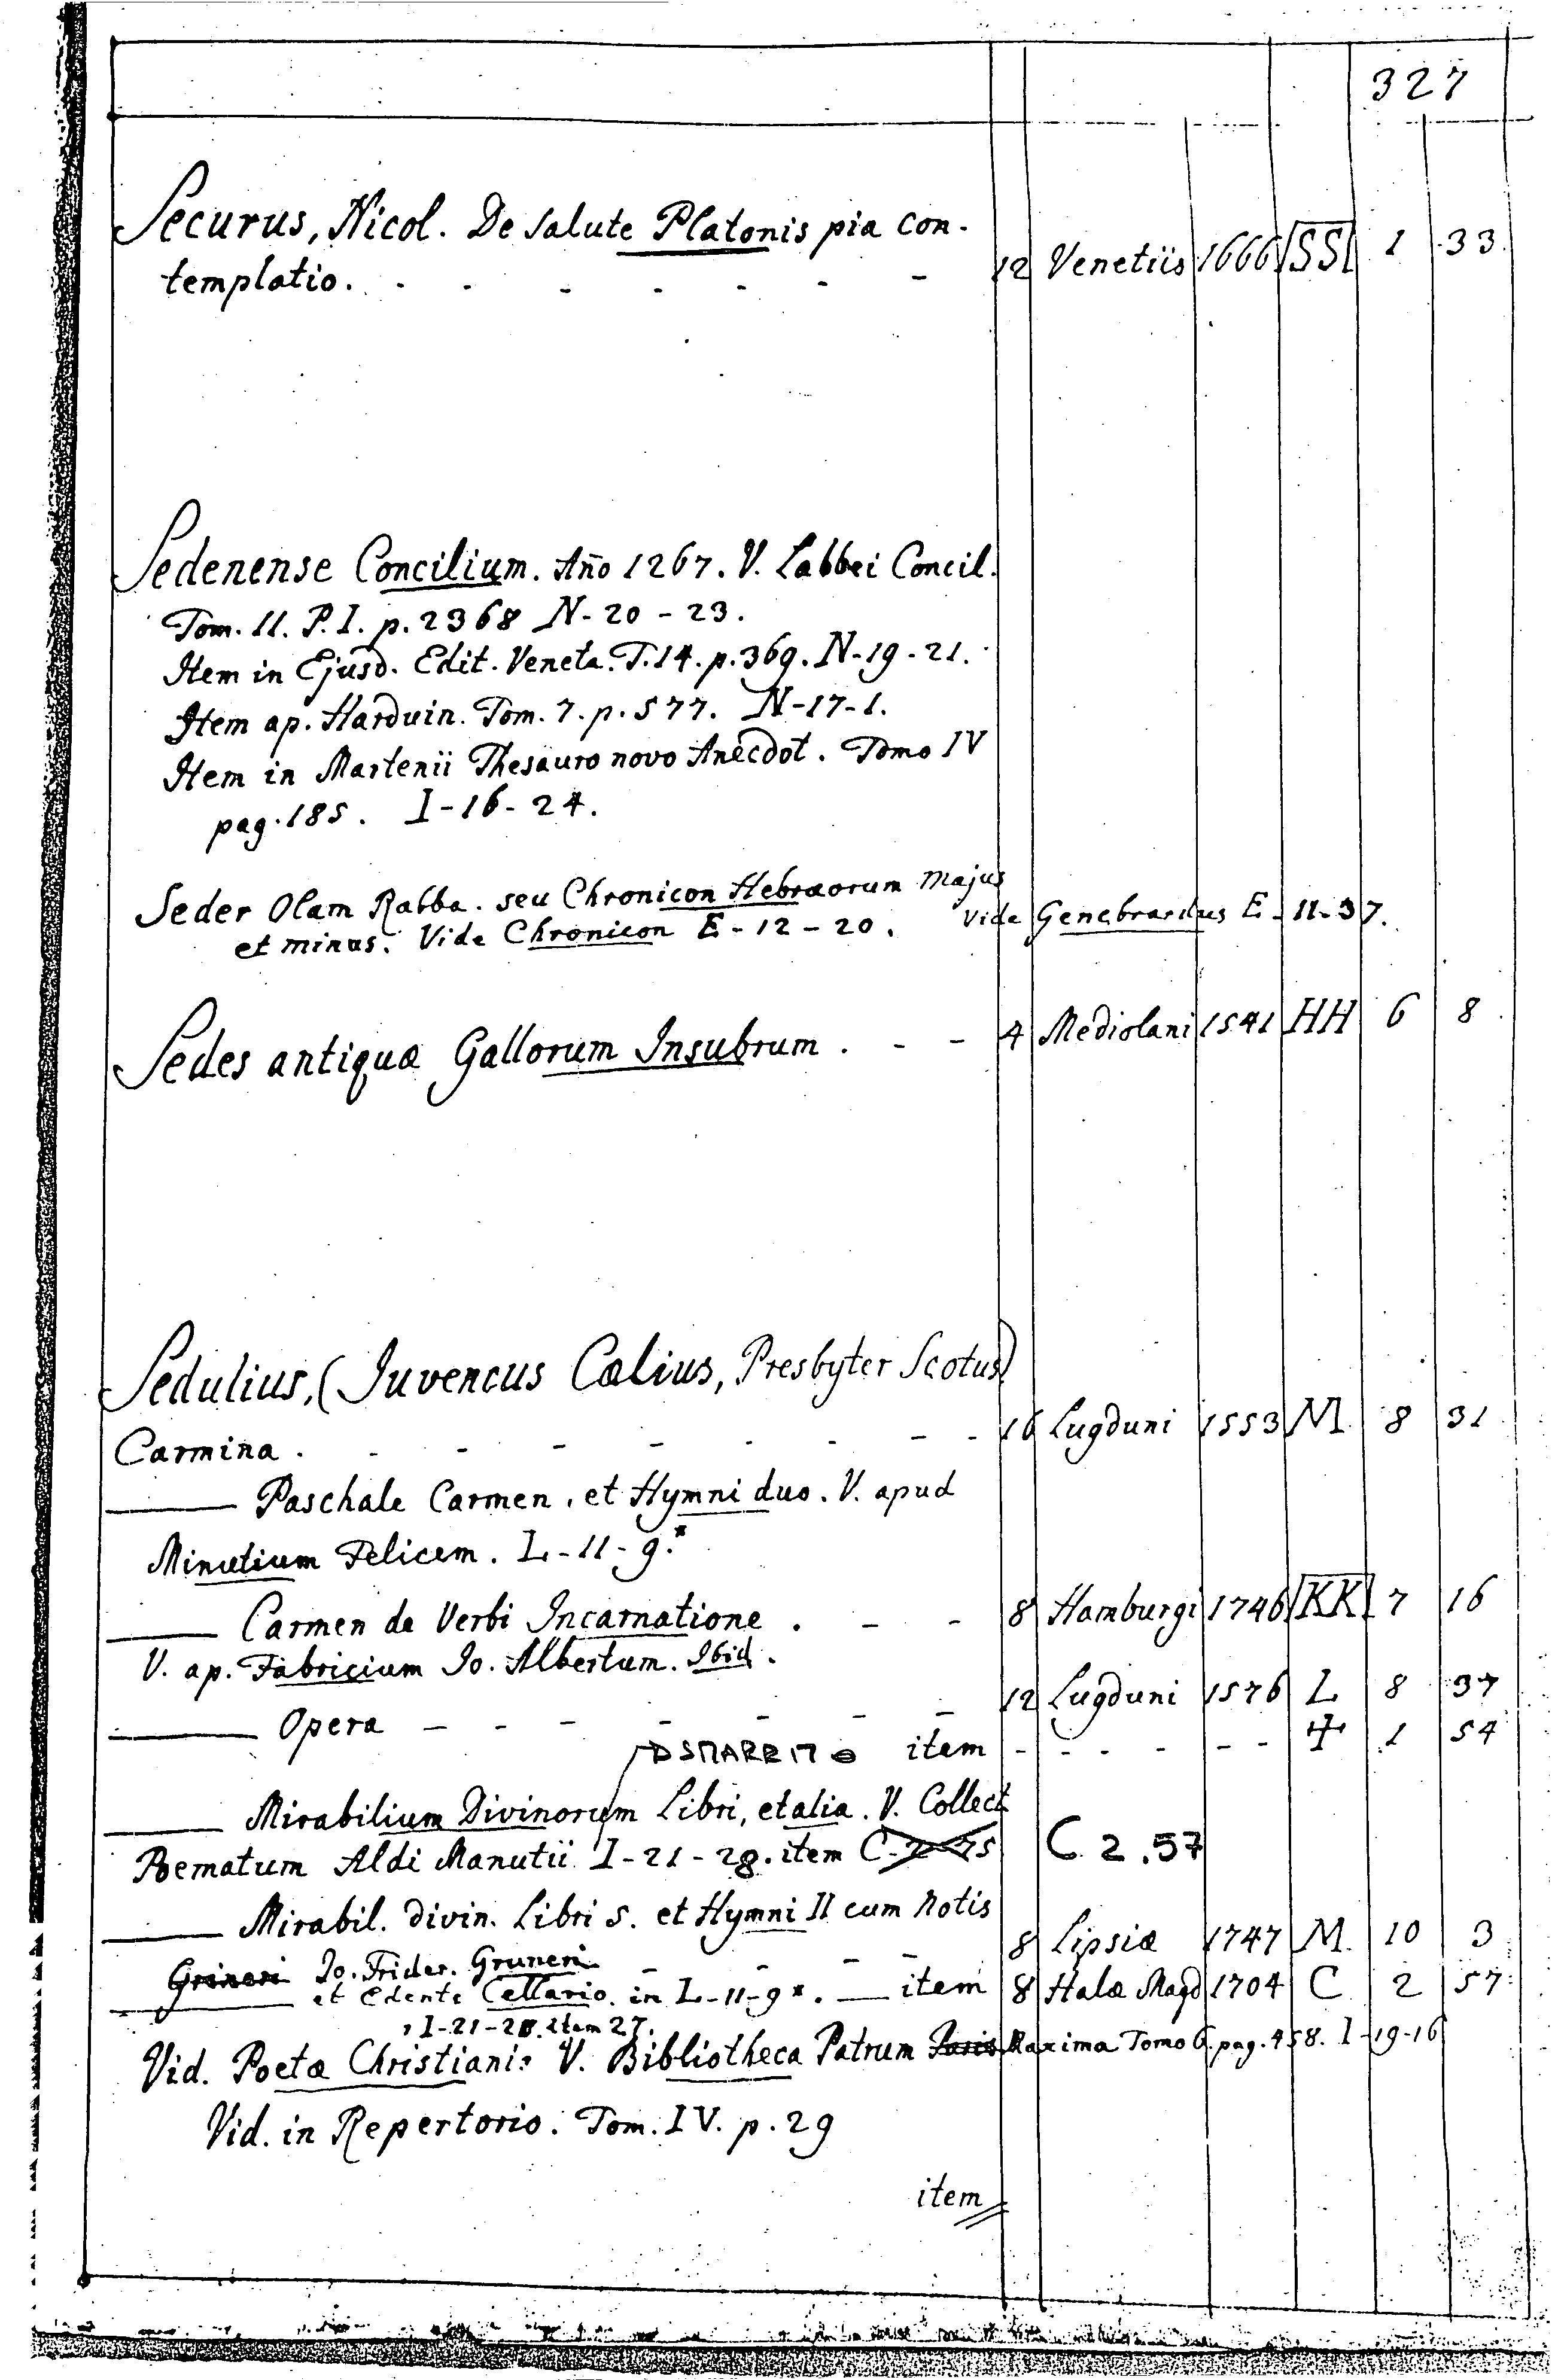 327
Securus, Nicol. De salute Platonis pia con-
templatio. - - - - - - - 12 Venetiis 1666 SS 1 33
Sedenense Concilium. Año 1267. V. Labbei Concil.
Tom. 11. P. I. p. 2368 N-20-23.
Item in Ejusd. Edit. Veneta. T. 14. p. 369. N-19-21.
Item ap. Harduin. Tom. 7. p. 577. N-17-1.
Item in Martenii Thesauro novo Anecdot. Tomo IV
pag. 185. I-16-24.
Seder Olam Rabba. seu Chronicon Hebræorum Majus
et minus. Vide Chronicon E-12-20. Vide Genebrardus E-11-37.
Sedes antiqua Gallorum Insubrum. - - 4 Mediolani 1541 HH 6 8
Sedulius, (Juvencus Cælius, Presbyter Scotus)
Carmina. - - - - - - - - 16 Lugduni 1553 M 8 31
—— Paschale Carmen, et Hymni duo. V. apud
Minutium Felicem. L-11-9.*
—— Carmen de Verbi Incarnatione. - - 8 Hamburgi 1746 KK 7 16
V. ap. Fabricium Jo. Albertum. Ibid.
—— Opera - - - - - - - 12 Lugduni 1576 L 8 37
SMARRITO item - - - - - - 1 54
—— Mirabilium Divinorum Libri, et alia. V. Collect
Poematum Aldi Manutii I-21-28. item C-2-75 C 2.57
—— Mirabil. divin. Libri 5. et Hymni II cum Notis
Grineri Jo. Frider. Gruneri - - - 8 Lipsiæ 1747 M. 10 3
—— et Edente Cellario. in L-11-9*. — item 8 Halæ Magd 1704 C 2 57
, I-21-28. item 27.
Vid. Poetæ Christiani. V. Bibliotheca Patrum Maxima Tomo 6. pag. 458. I-19-16
Vid. in Repertorio. Tom. IV. p. 29
item